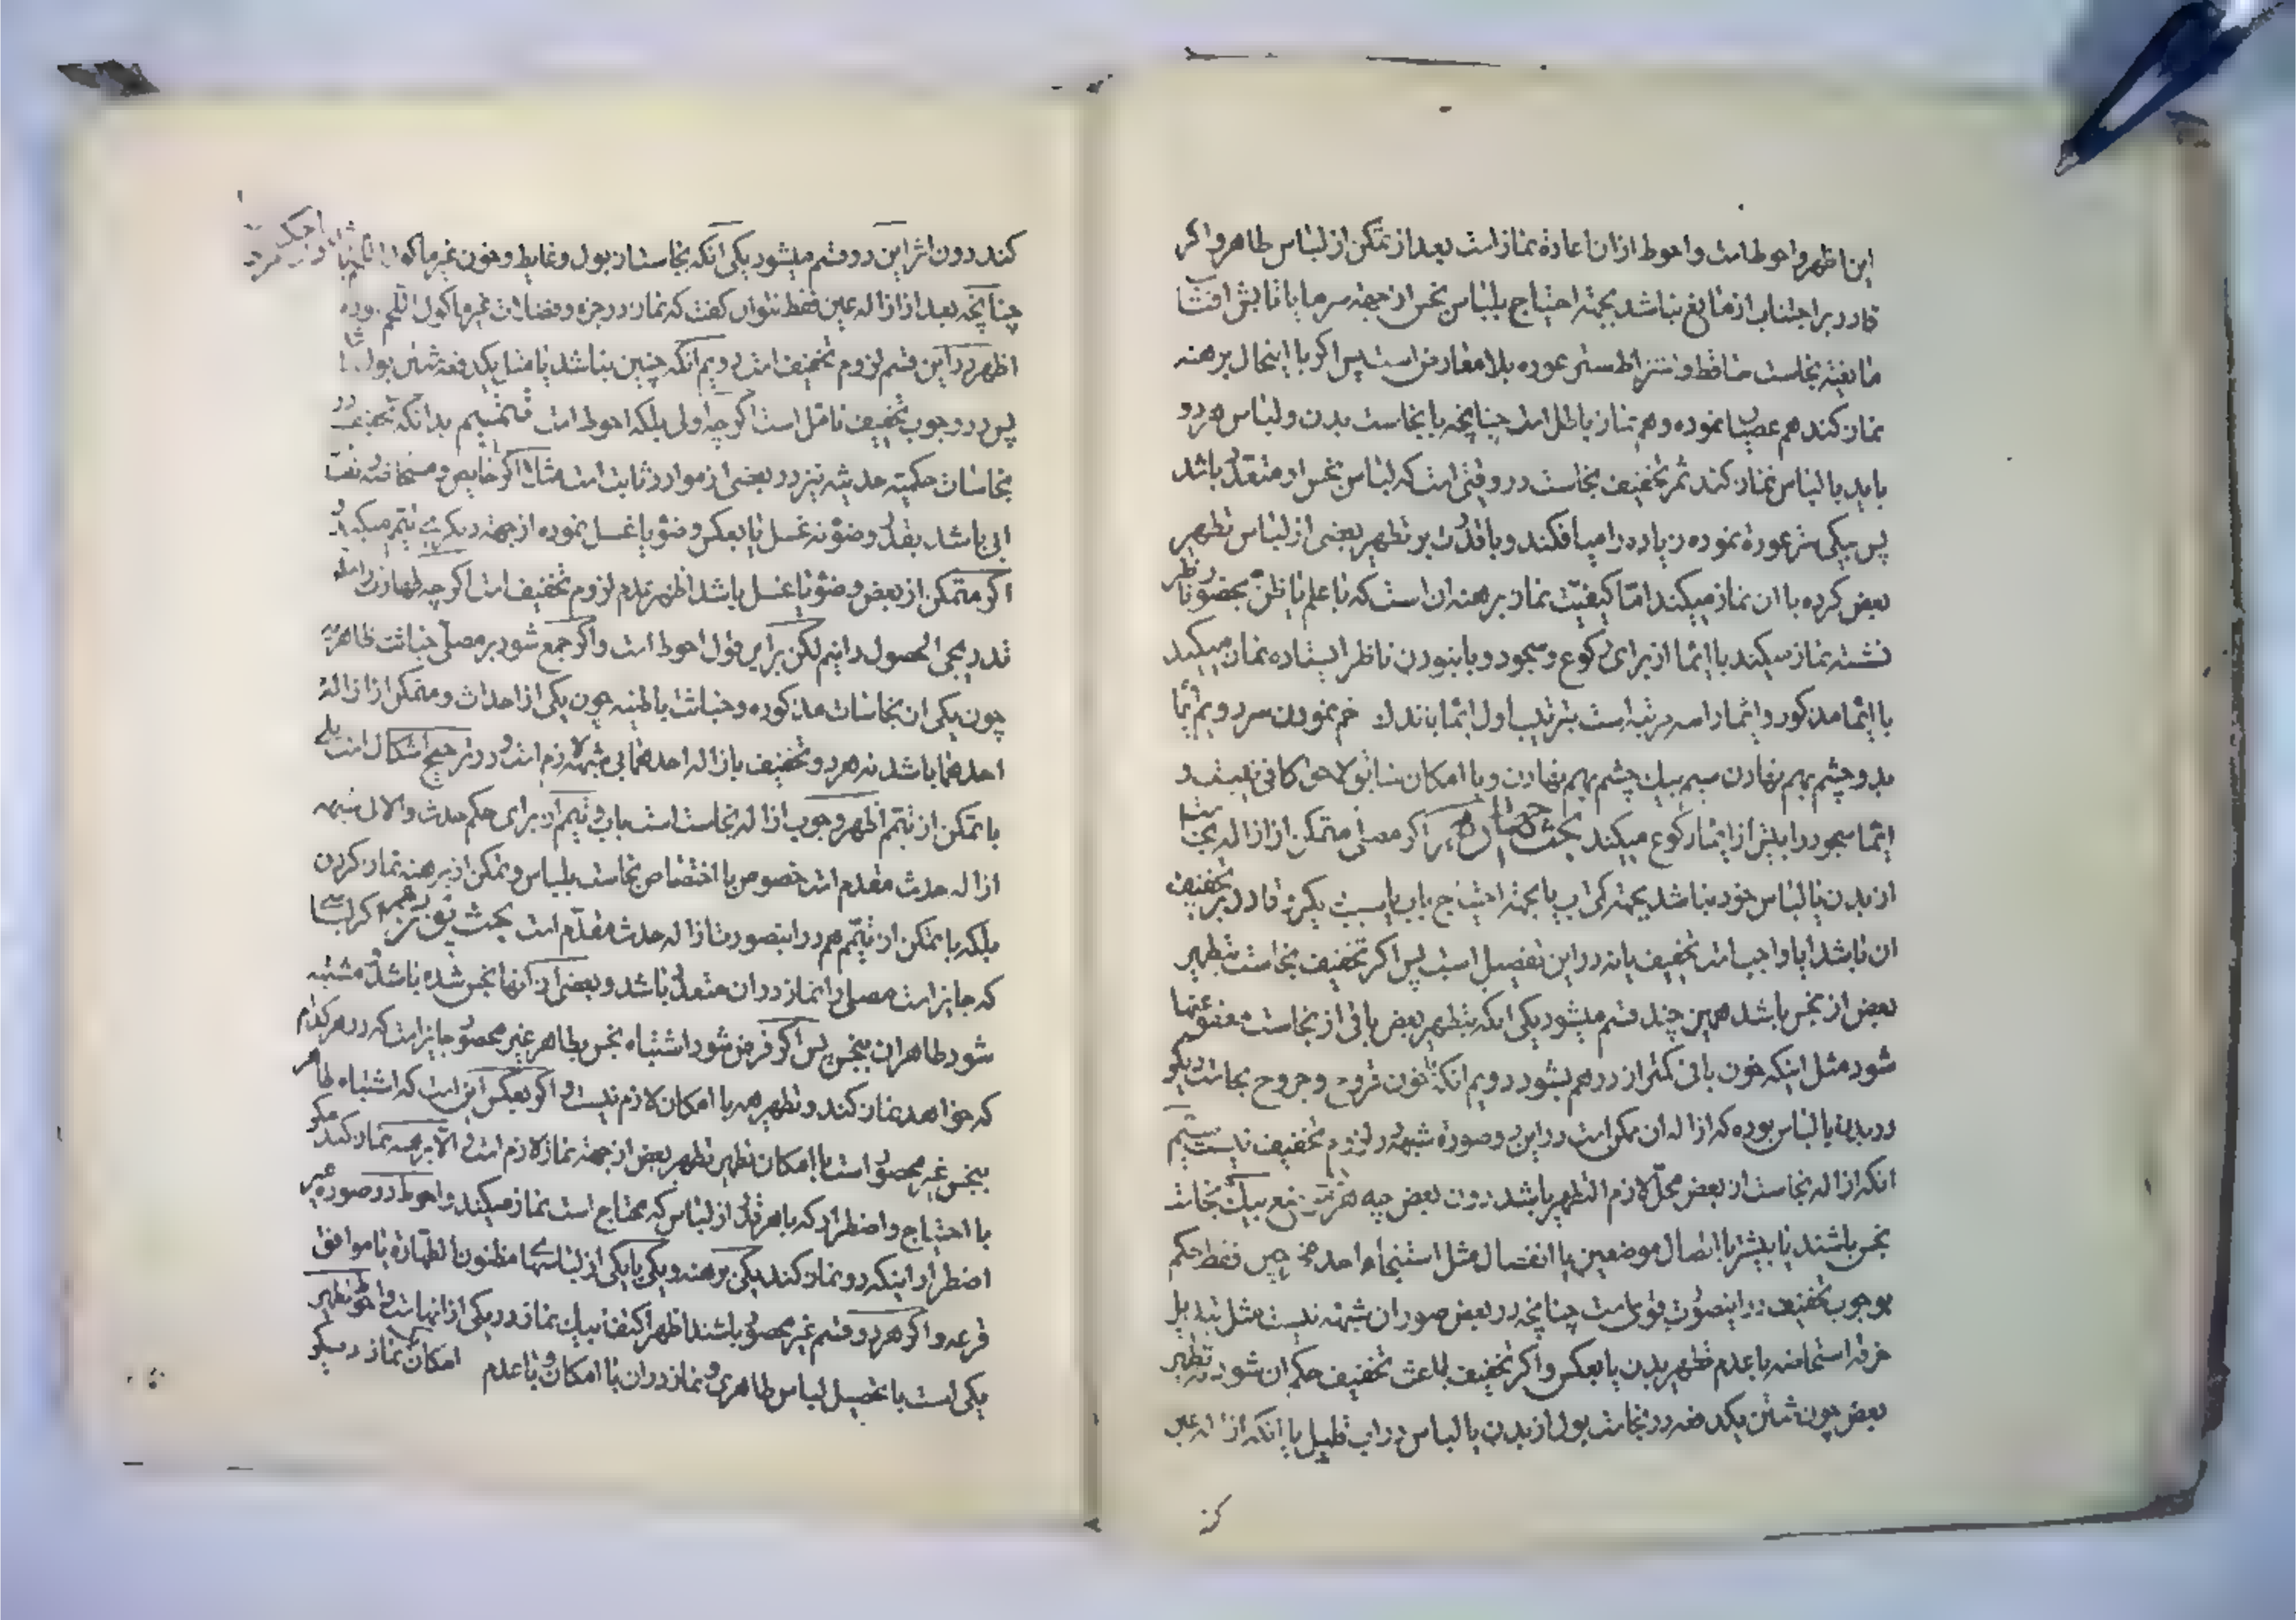 این اظهر و احوط است و احوط ازان اعادهٔ نماز است بعد از تمکن از لباس طاهر و اگر
قادر بر اجتناب از مانع نباشد بجهته احتیاج بلباس نجس از جهته سرما یا
مانعیته نجاست ساقط و اشتراط ستر عوره بلا معارض است پس اگر با اینحال برهنه
نماز کند هم عصیان نموده و هم نماز باطل است چنانچه با نجاست بدن و لباس هر دو
باید با لباس نماز کند ثمر تخفیف نجاست در وقتی است که لباس نجس او متعدد باشد
پس بیکی ستر عورة نموده زیاده را میافکند و با قدرت بر تطهیر بعضی از لباس تطهیر
بعض کرده با ان نماز میکند امّا کیفیّت نماز برهنه ان است که با علم یا ظنّ بحضور ناظر
نشسته نماز میکند با ایما از برای رکوع و سجود و با نبودن ناظر ایستاده نماز میکند
با ایما مذکور و ایما را سه مرتبه است بترتیب اول ایما باندک خم نمودن سر دویم ایما
بدو چشم بهم نهادن سیم بیک چشم بهم نهادن و با امکان سابق لاحق کافی نیست و
ایما سجود را بیش از ایما رکوع میکند بحث اگر مصلی متمکن از ازاله نجاست
از بدن یا لباس خود نباشد بجهته کمی اب یا بجهته احتیاج باب قادر بر تخفیف
ان باشد ایا واجب است تخفیف یا نه در این تفصیل است پس اگر تخفیف نجاست بتطهیر
بعض از نجس باشد همین چند قسم میشود یکی انکه بتطهیر بعض باقی از نجاست معفو عنها
شود مثل اینکه خون باقی کمتر از درهم بشود دویم انکه خون قروح و جروح نجاست دیگر
در بدن یا لباس بوده که ازاله ان ممکن است در این دو صورة شبههٔ در لزوم تخفیف نیست سیم
انکه ازاله نجاست از بعض محلّ لازم التطهیر باشد دون بعض چه بیک نجاست
نجس باشند یا بیشتر با اتصال موضعین یا انفصال مثل استنجاء احد مخرجین فقط حکم
بوجوب تخفیف در اینصورت قوی است چنانچه در بعض صور ان شبهه نیست مثل تبدیل
خرقه استحاضه با عدم تطهیر بدن یا بعکس و اگر تخفیف باعث تخفیف حکم ان شود نه تطهیر
بعض چون شستن یکدفعه در نجاست بول از بدن یا لباس در اب قلیل یا انکه ازاله عین
کند
کند دون اثر این دو قسم میشود یکی انکه نجاست از بول و غایط و خون غیر ماکول اللحم باشد
چنانچه بعد از ازاله عین فقط نتوان گفت که نماز در جزء و فضلات غیر ماکول اللحم بوده
اظهر در این قسم لزوم تخفیف است دویم انکه چنین نباشد یا مثل یکدفعه شستن بول باشد
پس در وجوب تخفیف تامل است اگرچه اولی بلکه احوط است تتمیم بدانکه تخفیف در
نجاسات حکمیّه حدثیّه نیز در بعضی از موارد ثابت است مثلا اگر حایض و مستحاضه نفت
ابی باشد بقدر وضوء نه غسل یا بعکس وضو یا غسل نموده از جهته دیگری تیمّم میکند و
اگر متمکن از بعض وضو یا غسل باشد اظهر عدم لزوم تخفیف است اگرچه طهارت را
تدریجی الحصول دانیم لکن بر این قول احوط است و اگر جمع شود بر مصلّی خباثت ظاهریه
چون یکی ان نجاسات مذکوره و خباثت باطنیه چون یکی از احداث و متمکن از ازالهٔ
احدهما باشد نه هر دو تخفیف بازاله احدهما بی شبهه لازم است و در ترجیح اشکال است بلی
با تمکن از تیمّم اظهر وجوب ازاله نجاست است باب و تیمّم از برای حکم حدث و الا بی شبهه
ازاله حدث مقدم است خصوص با اختصاص نجاست بلباس و تمکن از برهنه نماز کردن
بلکه با تمکن از تیمّم هم در اینصورت ازاله حدث مقدّم است بحث اگر لباسی
که جایز است مصلی را نماز در ان متعدد باشد و بعضی از انها نجس شده باشد و مشتبه
شود طاهر ان بنجس پس اگر فرض شود اشتباه نجس بطاهر غیر محصور جایز است که در هر کدام
که خواهد نماز کند و تطهیر همه با امکان لازم نیست و اگر بعکس این است که اشتباه طاهر
بنجس غیر محصور است با امکان تطهیر تطهیر بعض از جهته نماز لازم است و الّا برهنه نماز کند مگر
با احتیاج و اضطرار که باهر قدر از لباس که محتاج است نماز میکند و احوط در صورة غیر
اضطرار اینکه دو نماز کند یکی برهنه و یکی با یکی از لباسها مظنون الطهارة یا موافق
قرعه و اگر هر دو قسم غیر محصور باشند اظهر اکتفا بیک نماز در یکی از انها است و احوط تطهیر
یکی است یا تحصیل لباس طاهری و نماز در ان با امکان و با عدم امکان نماز دیگر